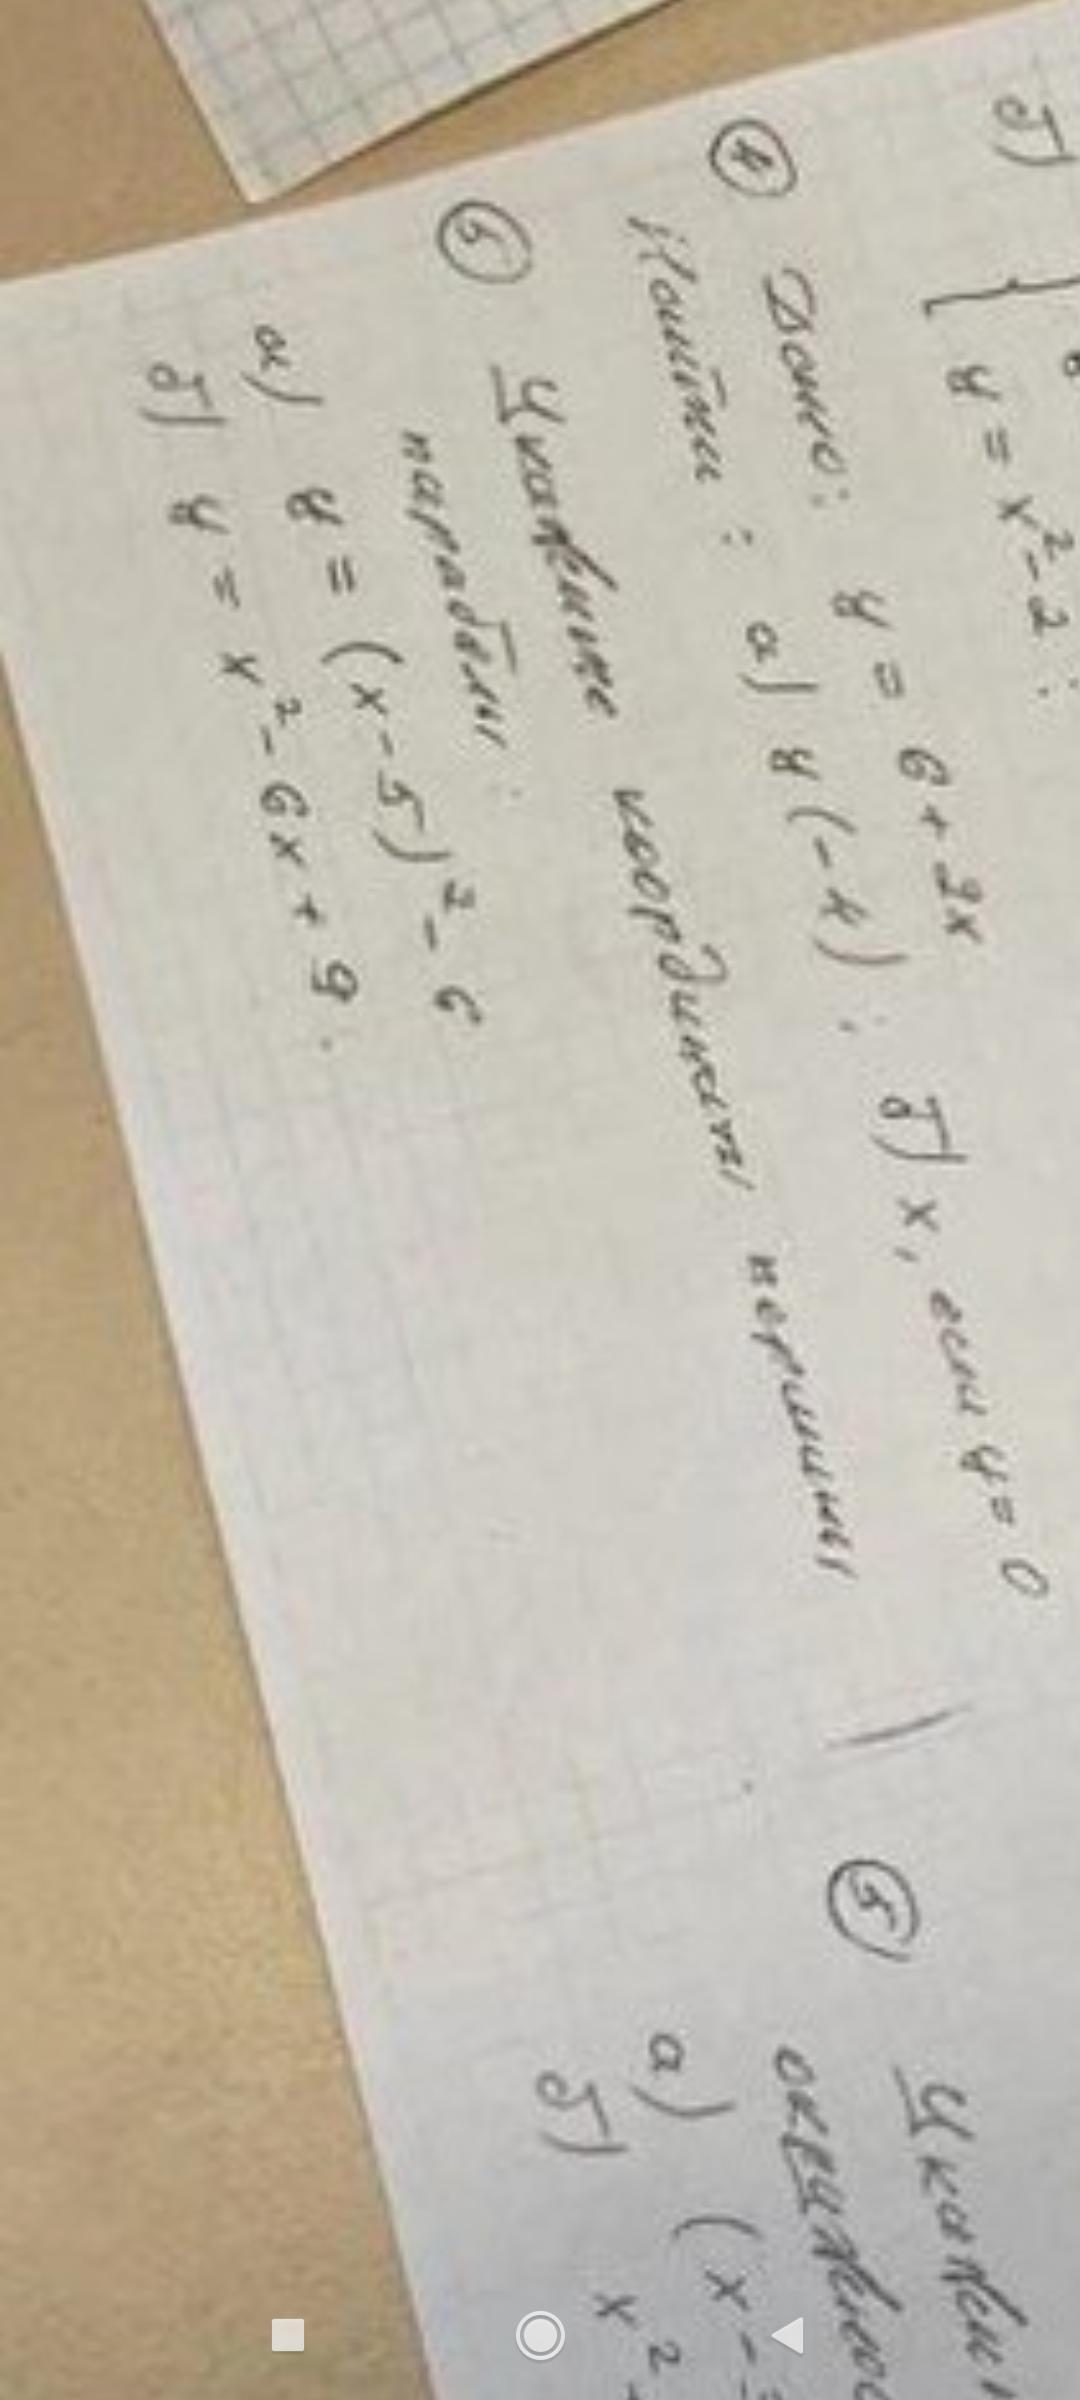 б) { y = x² - 2 ;
④ Дано: y = 6 + 2x
Найти : а) y(-4) ; б) x, если y = 0
⑤ Укажите координаты вершины
параболы :
а) y = (x - 5)² - 6
б) y = x² - 6x + 9 .
⑤
а) (x -
б) x²